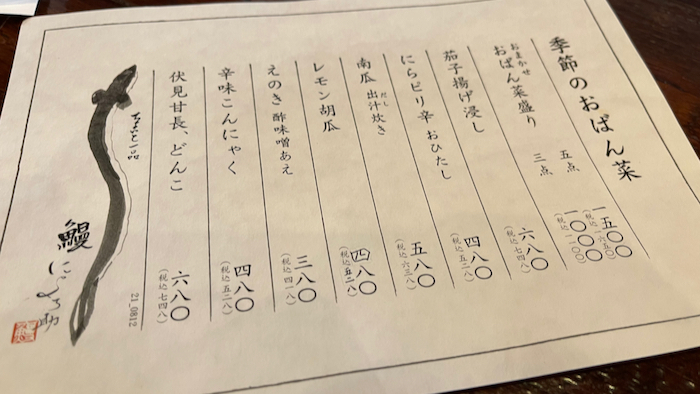 季節のおばん菜
おまかせ
おばん菜盛り 五点 一五〇〇
(税込一六五〇)
三点 一〇〇〇
(税込一一〇〇)
茄子揚げ浸し 六八〇
(税込七四八)
にらピリ辛 おひたし 四八〇
(税込五二八)
だし
南瓜 出汁炊き 五八〇
(税込六三八)
レモン胡瓜 四八〇
(税込五二八)
えのき 酢味噌あえ 三八〇
(税込四一八)
辛味こんにゃく 四八〇
(税込五二八)
伏見甘長、どんこ 六八〇
(税込七四八)
ちょいと一品
21_0812
鰻 にょろ助